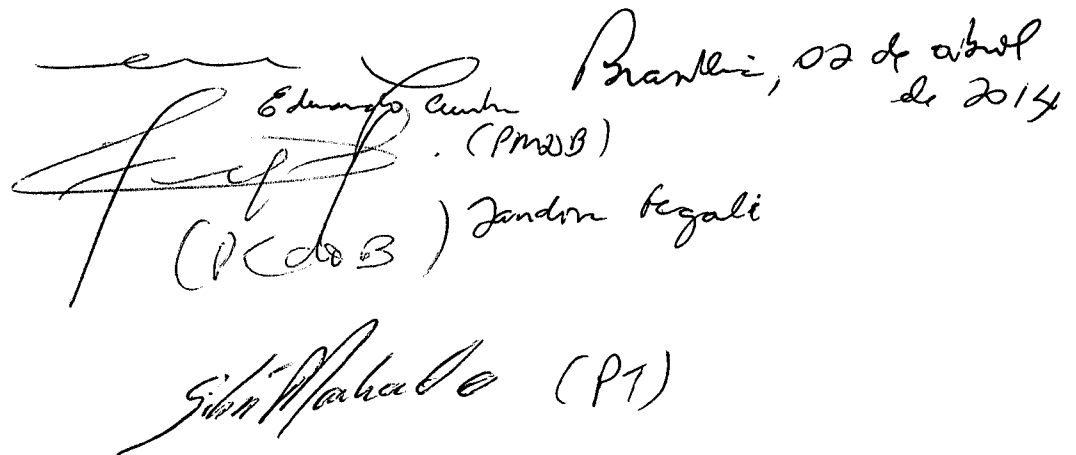 Brasília, 02 de abril
de 2014
Eduardo Cunha
(PMDB)
(PCdoB) Jandira Fegali
Sibá Machado (PT)